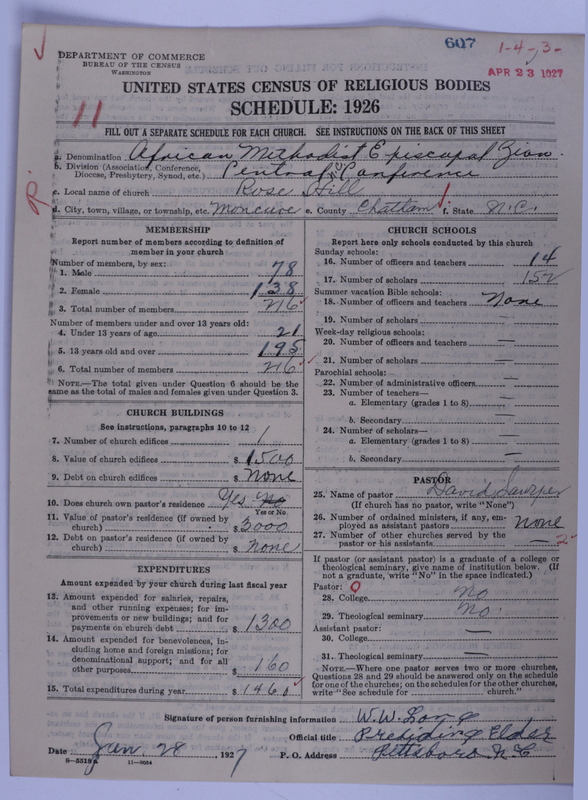 607
1-4-3-
APR 23 1927
DEPARTMENT OF COMMERCE
BUREAU OF THE CENSUS
WASHINGTON
UNITED STATES CENSUS OF RELIGIOUS BODIES
SCHEDULE: 1926
11
FILL OUT A SEPARATE SCHEDULE FOR EACH CHURCH. SEE INSTRUCTIONS ON THE BACK OF THIS SHEET
a. Denomination African Methodist Episcopal Zion.
b. Division (Association, Conference, Diocese, Presbytery, Synod, etc.) Central Conference
c. Local name of church Rose Hill
d. City, town, village, or township, etc. Moncure e. County Chatham f. State N.C.
MEMBERSHIP
Report number of members according to definition of
member in your church
Number of members, by sex:
1. Male 78
2. Female 138
3. Total number of members 216
Number of members under and over 13 years old:
4. Under 13 years of age 21
5. 13 years old and over 195
6. Total number of members 216
NOTE.—The total given under Question 6 should be the
same as the total of males and females given under Question 3.
CHURCH BUILDINGS
See instructions, paragraphs 10 to 12
7. Number of church edifices 1
8. Value of church edifices $ 1500
9. Debt on church edifices $ None
10. Does church own pastor's residence Yes No
Yes or No
11. Value of pastor's residence (if owned by
church) $ 3000
12. Debt on pastor's residence (if owned by
church) $ none
EXPENDITURES
Amount expended by your church during last fiscal year
13. Amount expended for salaries, repairs,
and other running expenses; for im-
provements or new buildings; and for
payments on church debt $ 1300
14. Amount expended for benevolences, in-
cluding home and foreign missions; for
denominational support; and for all
other purposes $ 160
15. Total expenditures during year $ 1460
CHURCH SCHOOLS
Report here only schools conducted by this church
Sunday schools:
16. Number of officers and teachers 14
17. Number of scholars 152
Summer vacation Bible schools:
18. Number of officers and teachers None
19. Number of scholars —
Week-day religious schools:
20. Number of officers and teachers —
21. Number of scholars —
Parochial schools:
22. Number of administrative officers —
23. Number of teachers—
a. Elementary (grades 1 to 8) —
b. Secondary —
24. Number of scholars—
a. Elementary (grades 1 to 8) —
b. Secondary —
PASTOR
25. Name of pastor David
(If church has no pastor, write "None")
26. Number of ordained ministers, if any, em-
ployed as assistant pastors none
27. Number of other churches served by the
pastor or his assistants — 2
If pastor (or assistant pastor) is a graduate of a college or
theological seminary, give name of institution below. (If
not a graduate, write "No" in the space indicated.)
Pastor: 0
28. College No
29. Theological seminary No.
Assistant pastor:
30. College —
31. Theological seminary —
NOTE.—Where one pastor serves two or more churches,
Questions 28 and 29 should be answered only on the schedule
for one of the churches; on the schedules for the other churches,
write "See schedule for ............ church."
Signature of person furnishing information W.W. Long
Official title Presiding Elder
Date Jan 28 1927 P. O. Address Pittsboro N.C
8—5519 a 11—9034